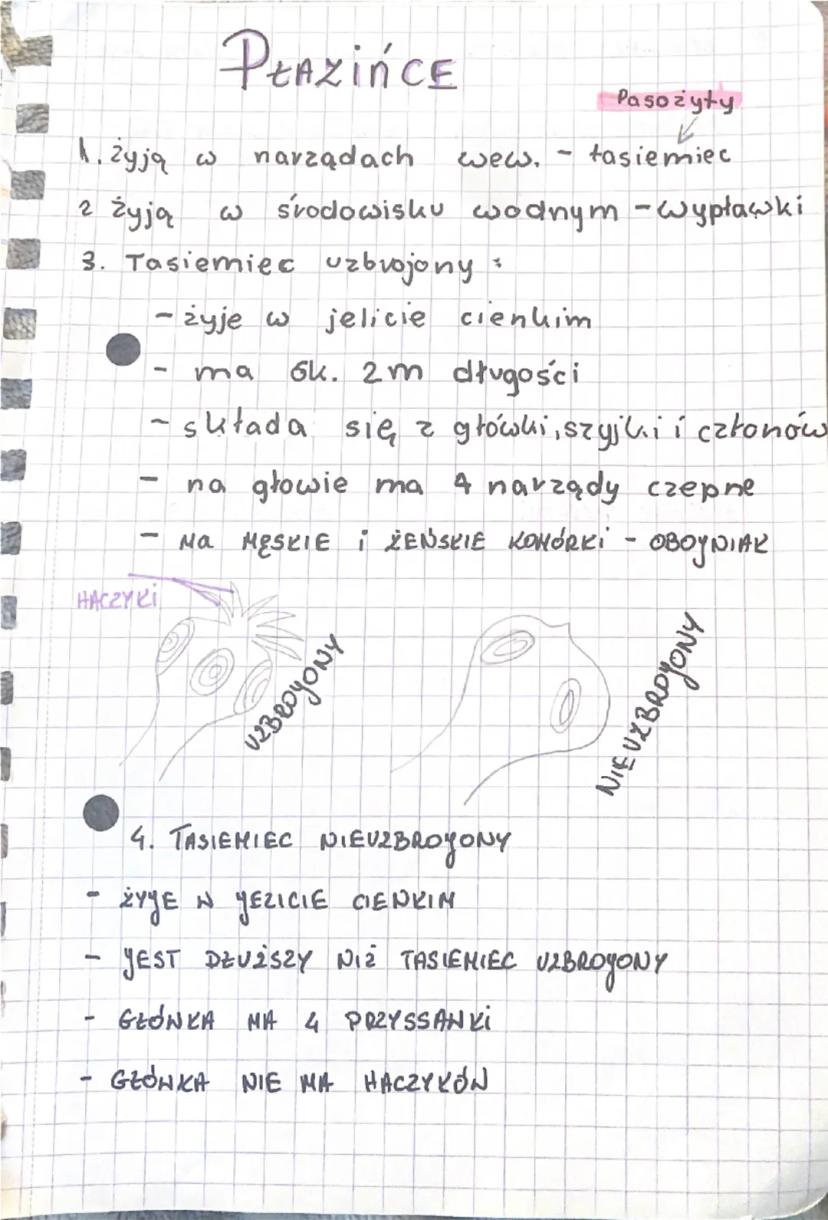 PŁAZIŃCE
Pasożyty
1. żyją w narządach wew. - tasiemiec
2 żyją w środowisku wodnym - wypławki
3. Tasiemiec uzbrojony :
- żyje w jelicie cienkim
- ma ok. 2m długości
- składa się z główki, szyjki i członów
- na głowie ma 4 narządy czepne
- Ma MĘSKIE i ŻEŃSKIE KOMÓRKi - OBOJNIAK
HACZYKi
UZBROJONY
NIEUZBROJONY
4. TASIEMIEC NIEUZBROJONY
- ŻYJE W JELICIE CIENKIM
- JEST DŁUŻSZY NIŻ TASIEMIEC UZBROJONY
- GŁÓWKA MA 4 PRZYSSANKi
- GŁÓWKA NIE MA HACZYKÓW